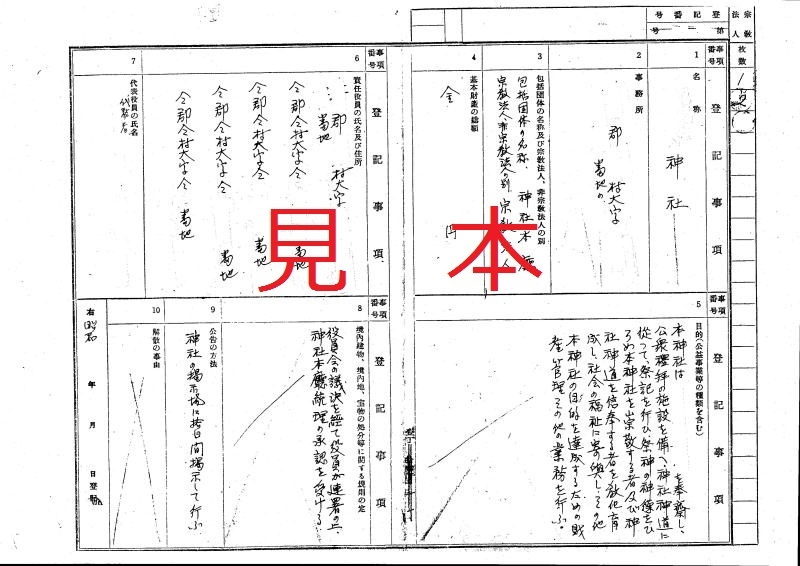 宗教法人
登記番号
第 号
枚数
事項番号
登記事項
1
名称
神社
2
事務所
郡 村大字
番地の
3
包括団体の名称及び宗教法人、非宗教法人の別
包括団体の名称 神社本廳
宗教法人非宗教法人の別 宗教法人
4
基本財産の総額
金 円
事項番号
登記事項
5
目的(公益事業等の種類を含む)
本神社は を奉斎し、
公衆礼拝の施設を備へ、神社神道に
従つて、祭祀を行ひ祭神の神徳をひ
ろめ本神社を崇敬する者及び神
社神道を信奉する者を教化育
成し、社会の福祉に寄与しその他
本神社の目的を達成するための財
産管理その他の業務を行ふ。
事項番号
登記事項
6
責任役員の氏名及び住所
郡 村大字
番地
仝郡仝村大字仝 番地
仝郡仝村大字仝 番地
仝郡仝村大字仝 番地
仝郡仝村大字仝 番地
7
代表役員の氏名
事項番号
登記事項
8
境内建物、境内地、宝物の処分等に関する規則の定
役員会の議決を経て役員が連署の上、
神社本廳統理の承認を受ける。
9
公告の方法
神社の掲示場に拾日間掲示して行ふ
10
解散の事由
右昭和 年 月 日登記
見本